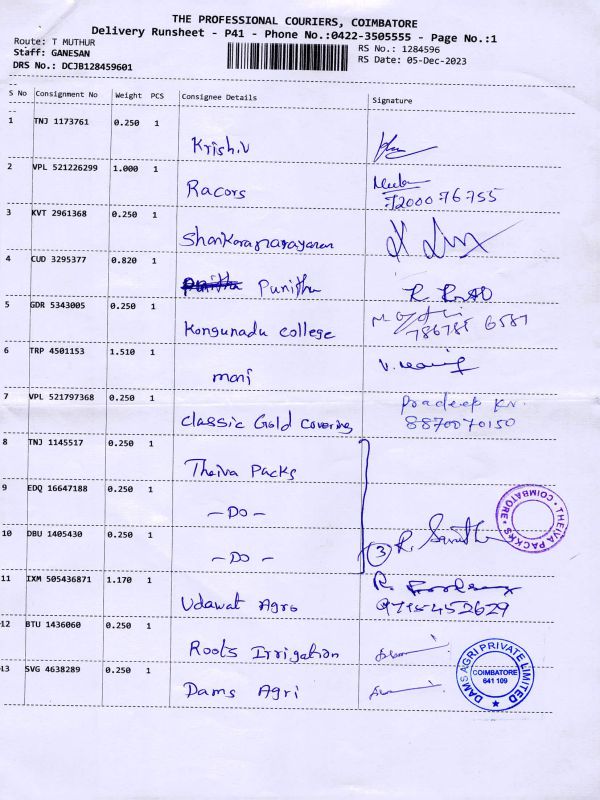 THE PROFESSIONAL COURIERS, COIMBATORE
Delivery Runsheet - P41 - Phone No.:0422-3505555 - Page No.:1
Route: T MUTHUR
Staff: GANESAN
DRS No.: DCJB128459601
RS No.: 1284596
RS Date: 05-Dec-2023
S No Consignment No Weight PCS Consignee Details Signature
1 TNJ 1173761 0.250 1 Krish.V
2 VPL 521226299 1.000 1 Racors
7200076755
3 KVT 2961368 0.250 1 Shankaranarayanan
4 CUD 3295377 0.820 1 Punitha
5 GDR 5343005 0.250 1 Kongunadu college
786785 6587
6 TRP 4501153 1.510 1 mani
7 VPL 521797368 0.250 1 Classic Gold Covering
Pradeep KV.
8870070150
8 TNJ 1145517 0.250 1 Theiva Packs
9 EDQ 16647188 0.250 1 - DO -
THEIVA PACKS * COIMBATORE *
10 DBU 1405430 0.250 1 - DO - 3
11 IXM 505436871 1.170 1 Udawat Agro
9715452629
12 BTU 1436060 0.250 1 Roots Irrigation
13 SVG 4638289 0.250 1 Dams Agri
DAMS AGRI PRIVATE LIMITED
COIMBATORE
641 109